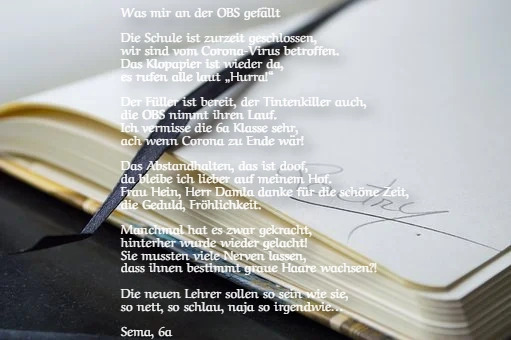 Was mir an der OBS gefällt
Die Schule ist zurzeit geschlossen,
wir sind vom Corona-Virus betroffen.
Das Klopapier ist wieder da,
es rufen alle laut „Hurra!“
Der Füller ist bereit, der Tintenkiller auch,
die OBS nimmt ihren Lauf.
Ich vermisse die 6a Klasse sehr,
ach wenn Corona zu Ende wär!
Das Abstandhalten, das ist doof,
da bleibe ich lieber auf meinem Hof.
Frau Hein, Herr Damla danke für die schöne Zeit,
die Geduld, Fröhlichkeit.
Poetry
Manchmal hat es zwar gekracht,
hinterher wurde wieder gelacht!
Sie mussten viele Nerven lassen,
dass ihnen bestimmt graue Haare wachsen?!
Die neuen Lehrer sollen so sein wie sie,
so nett, so schlau, naja so irgendwie...
Sema, 6a